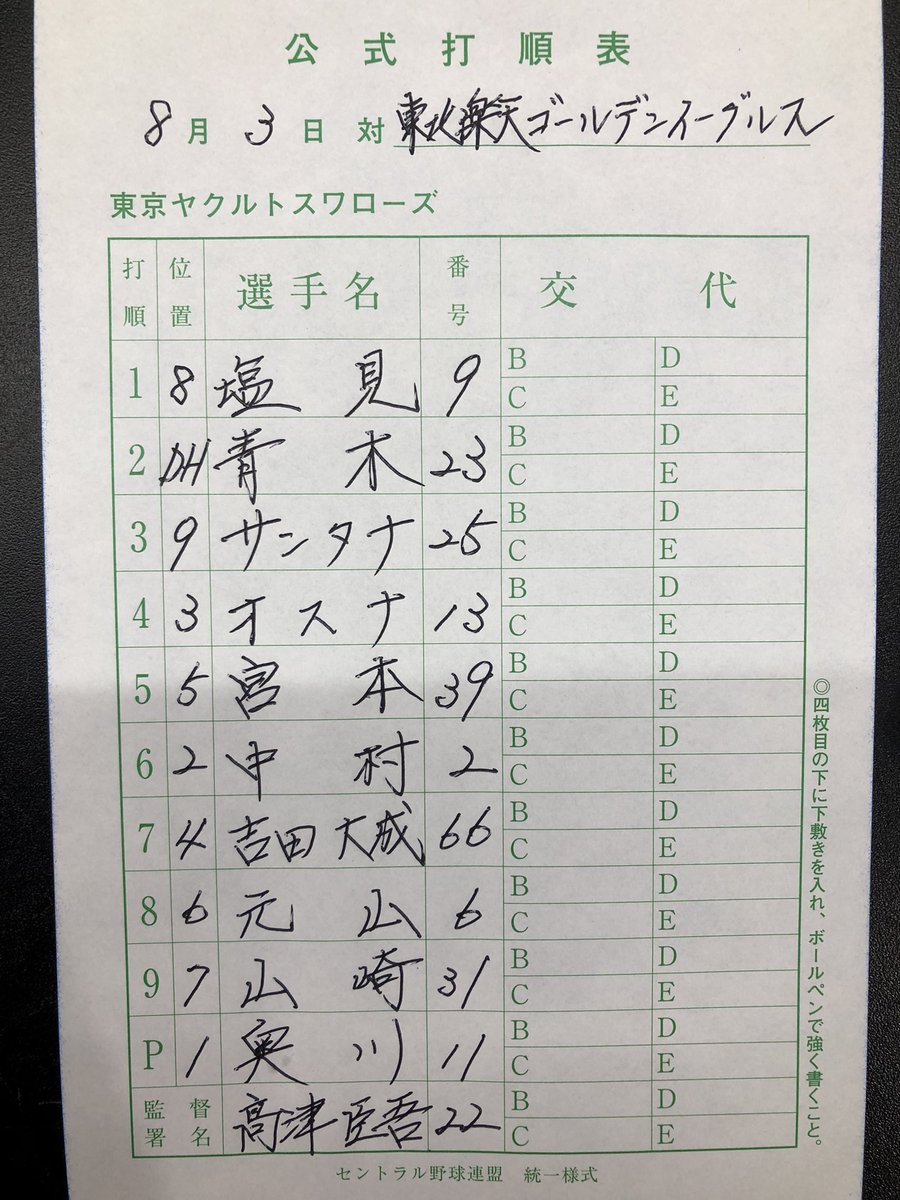 公式打順表
8月3日 対 東北楽天ゴールデンイーグルス
東京ヤクルトスワローズ
打順 位置 選手名 番号 交代
1 8 塩見 9 B D
C E
2 DH 青木 23 B D
C E
3 9 サンタナ 25 B D
C E
4 3 オスナ 13 B D
C E
5 5 宮本 39 B D
C E
6 2 中村 2 B D
C E
7 4 吉田大成 66 B D
C E
8 6 元山 6 B D
C E
9 7 山崎 31 B D
C E
P 1 奥川 11 B D
C E
監督署名 高津臣吾 22 B D
C E
◎四枚目の下に下敷きを入れ、ボールペンで強く書くこと。
セントラル野球連盟 統一様式